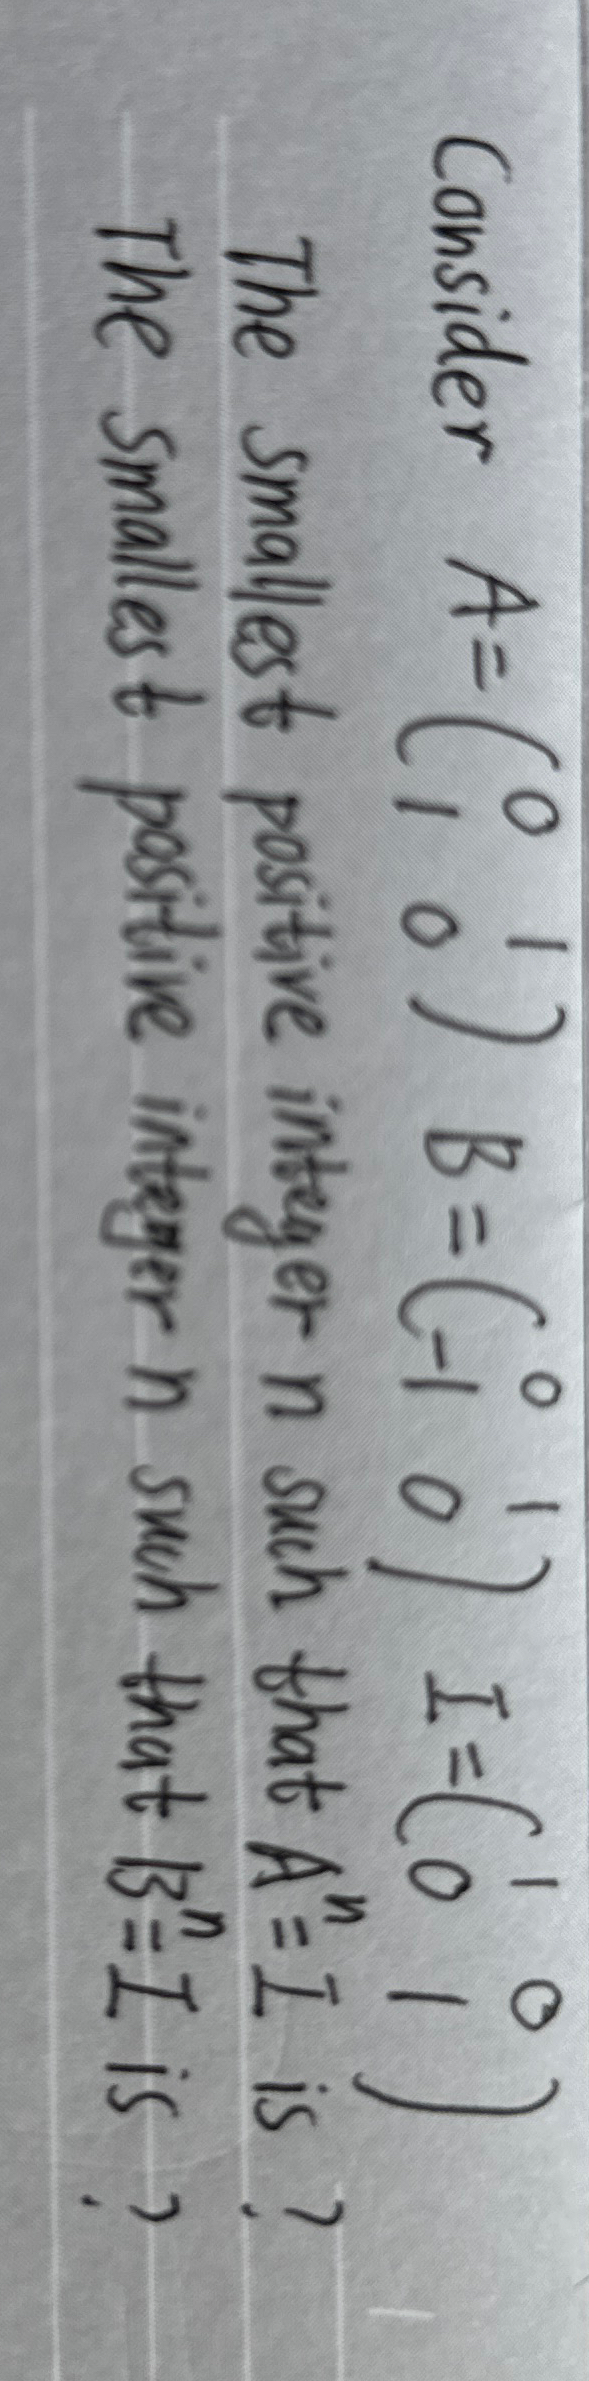 Consider A = (0 1
1 0) B = (0 1
-1 0) I = (1 0
0 1)
The smallest positive integer n such that Aⁿ = I is ?
The smallest positive integer n such that Bⁿ = I is ?